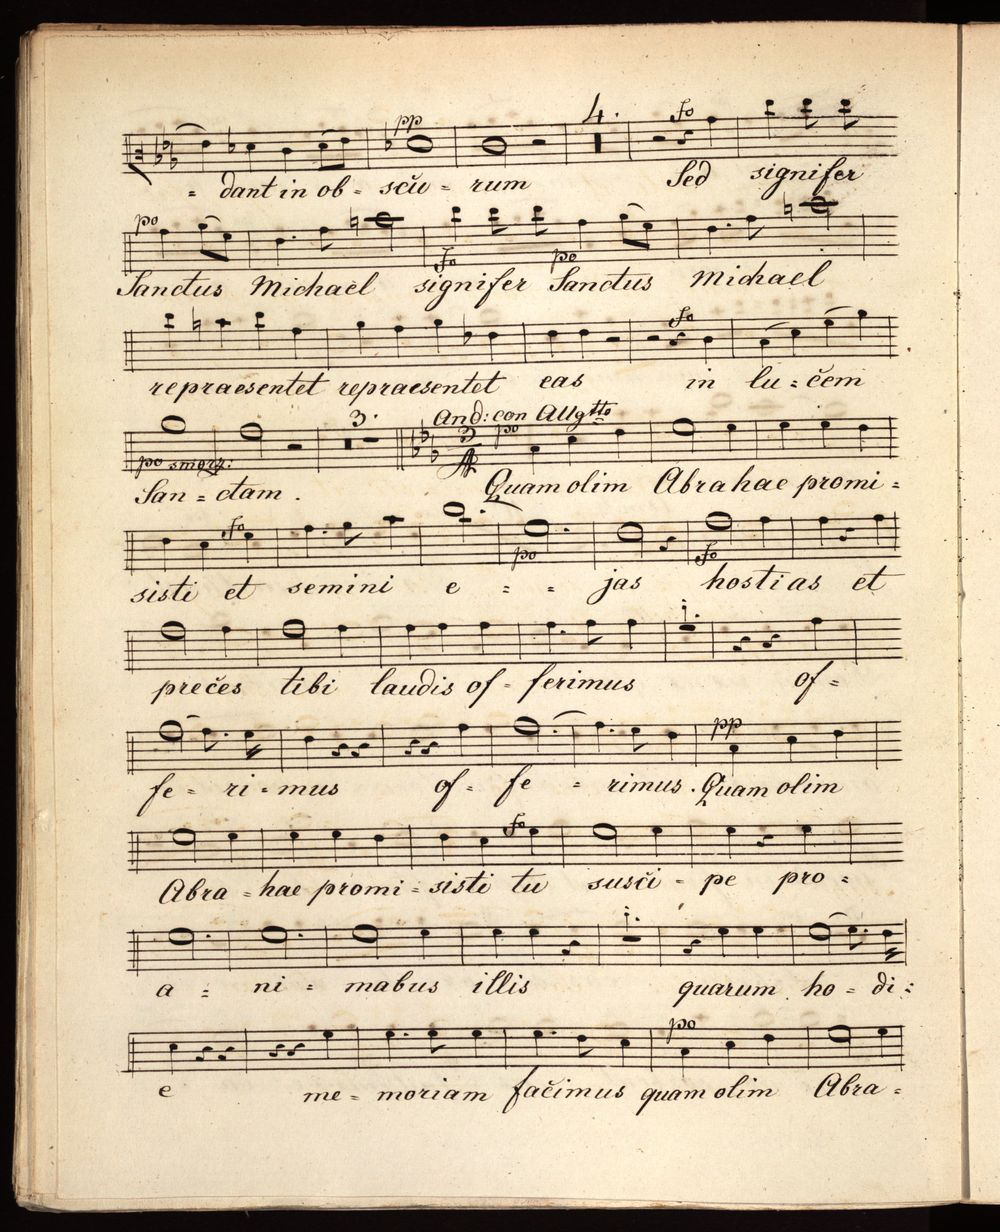 pp 4. fo
= dant in ob = sču = rum Sed signifer
po fo po
Sanctus Michael signifer Sanctus Michael
fo
repraesentet repraesentet eas in lu = čem
po smorz: 3. And: con Allgtto 3 po
San = ctam. Quam olim Abrahae promi =
fo po fo
sisti et semini e = = jas hostias et
1.
prečes tibi laudis of = ferimus of =
pp
fe = ri = mus of = fe = rimus. Quam olim
fo
Abra = hae promi = sisti tu susči = pe pro =
1.
a = ni = mabus illis quarum ho = di =
po
e me = moriam fačimus quam olim Abra =